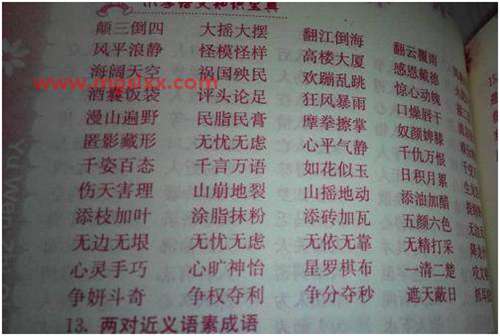 小学语文知识宝典
颠三倒四 大摇大摆 翻江倒海 翻云覆雨
风平浪静 怪模怪样 高楼大厦 感恩戴德
海阔天空 祸国殃民 欢蹦乱跳 惊心动魄
酒囊饭袋 评头论足 狂风暴雨 口燥唇干
漫山遍野 民脂民膏 摩拳擦掌 奴颜婢膝
匿影藏形 无忧无虑 心平气静 千仇万恨
千姿百态 千言万语 如花似玉 日积月累
伤天害理 山崩地裂 山摇地动 添油加醋
添枝加叶 涂脂抹粉 添砖加瓦 五颜六色
无边无垠 无忧无虑 无依无靠 无精打采
心灵手巧 心旷神怡 星罗棋布 一清二楚
争妍斗奇 争权夺利 争分夺秒 遮天蔽日
13. 两对近义语素成语